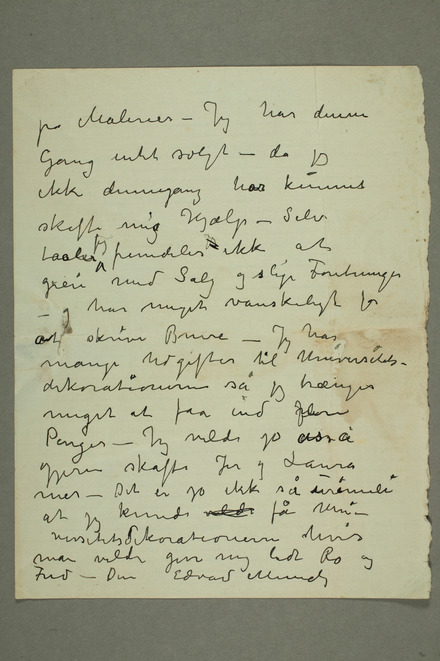 på Malerier – Jeg har denne
Gang intet solgt – da jeg
ikke dennegang har kunnet
skaffe mig Hjælp – Selv
taaler jeg fremdeles ikke at
greie med Salg og slige Forretninger
– og har meget vanskeligt for
at skrive Breve – Jeg har
mange Udgifter til Universitets-
dekorationerne så jeg trænger
meget at faa ind flere
Penger – Jeg vilde jo også
gjerne skaffe Jer og Laura
mer – Det er jo ikke så urimeli
at jeg kunde få Uni-
versitetsdekorationerne hvis
man vilde give mig lidt Ro og
Fred – Din Edvard Munch